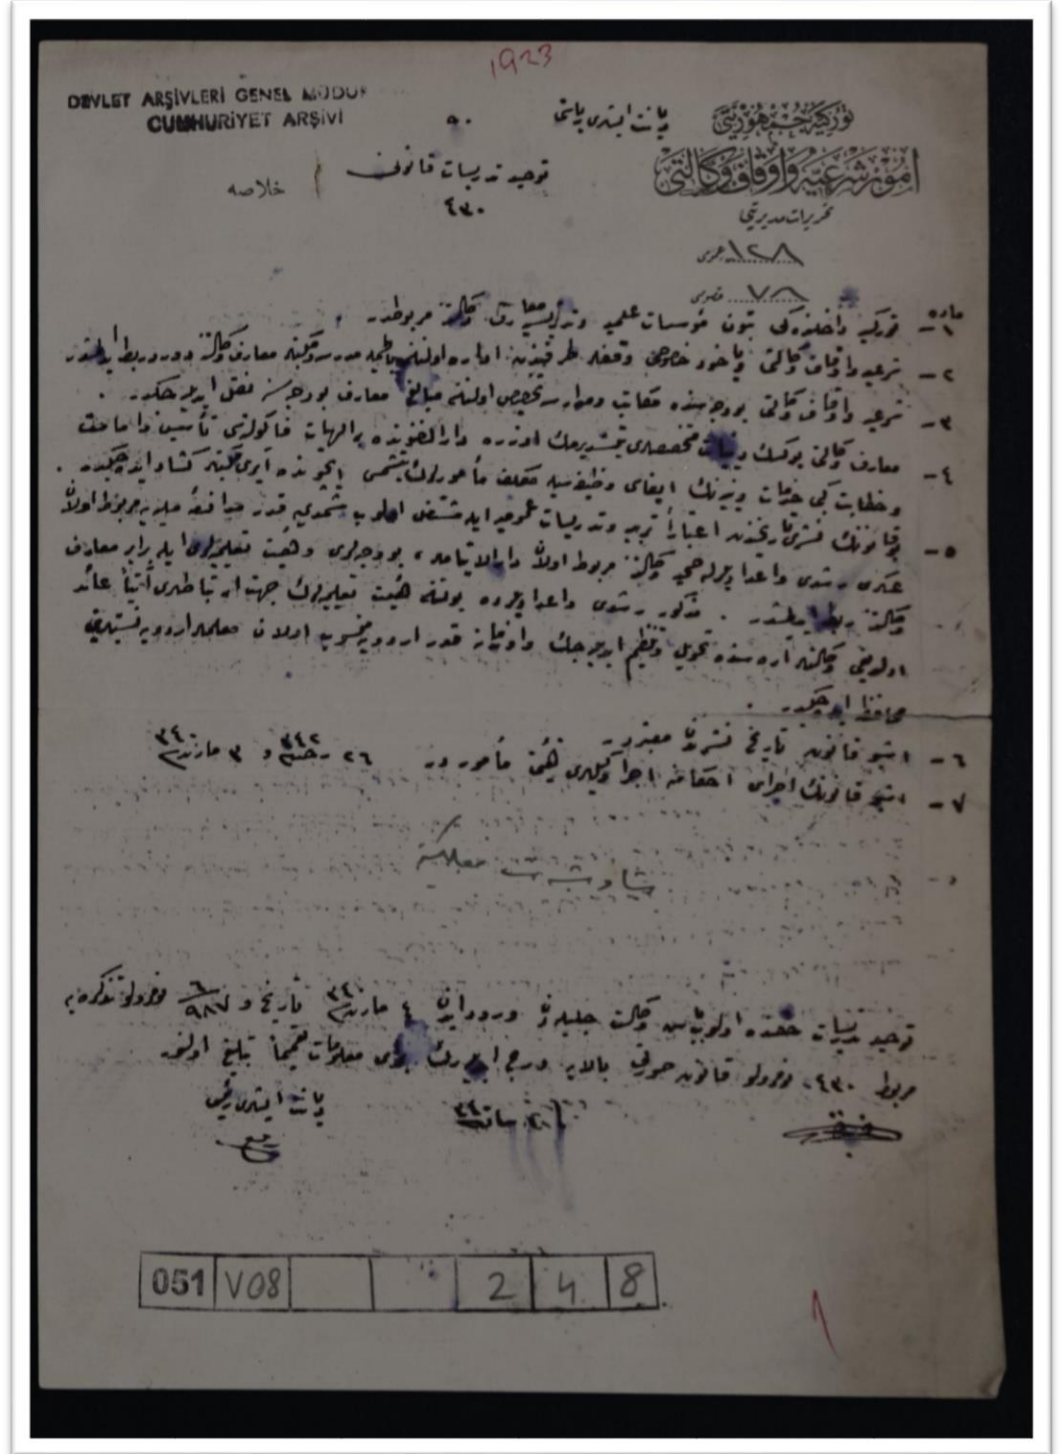 1923
DEVLET ARŞİVLERİ GENEL MÜDÜR
CUMHURİYET ARŞİVİ
توركيه جمهوريتى
امور شرعيه و اوقاف وكالتى
تحريرات مديريتى
ديانت ايشلرى رياستى
٩٠
توحيد تدريسات قانونى
٤٣٠
خلاصه
عمومى ١٢٨
خصوصى ٧٨
ماده
١- توركيه داخلنده كى بتون مؤسسات علميه و تدريسيه معارف وكالتنه مربوطدر .
٢- شرعيه و اوقاف وكالتى وياخود خصوصى وقفلر طرفندن اداره اولنان بالجمله مدرسه و مكتبلر معارف وكالتنه دور و ربط ايدلمشدر
٣- شرعيه و اوقاف وكالتى بودجه سنده مكاتب و مدارسه تخصيص اولنان مبالغ معارف بودجه سنه نقل ايديله جكدر .
٤- معارف وكالتى يوكسك دينيات متخصصلرى يتشديرمك اوزره دارالفنونده بر الهيات فاكولته سى تأسيس و امامت
و خطابت كبى خدمات دينيه نك ايفاسى وظيفه سيله مكلف مأمورلرك يتشمسى ايچون ده آيرى مكتبلر كشاد ايده جكدر .
٥- بو قانونك نشرى تاريخندن اعتباراً تربيه و تدريسات عموميه ايله مشتغل اولوب شمدى يه قدر مدافعۀ مليه يه مربوط اولان
عسكرى رشدى و اعداديلرله صحيه وكالتنه مربوط اولان دارالايتاملر ، بودجه لرى و هيئت تعليميه لرى ايله برابر معارف
وكالتنه ربط ايدلمشدر . مذكور رشدى و اعداديلرده بولنان هيئت تعليميه لرك جهت ارتباطلرى آتياً عائد
اولديغى وكالتلر اره سنده تحويل و تنظيم ايديله جك و او زمانه قدر اردويه منسوب اولان معلملر اردويه نسبتلرينى
محافظه ايده جكدر .
٦- اشبو قانون تاريخ نشرندن معتبردر
٧- اشبو قانونك اجراى احكامنه اجرا وكيللرى هيئتى مأموردر ٢٦ رجب ٣٤٢ و ٣ مارت ٣٤٠
توحيد تدريسات حقنده اولوب باش وكالت جليله دن ورود ايدن ٤ مارت ٣٤٠ تاريخ و ٦/٩٨٧ نومرولو تذكره يه
مربوط ٤٣٠ نومرولو قانون صورتى بالايه درج ايديله رك براى معلومات تعميماً تبليغ اولنور
ديانت ايشلرى رئيسى
رفعت
051 V08 2 4 8